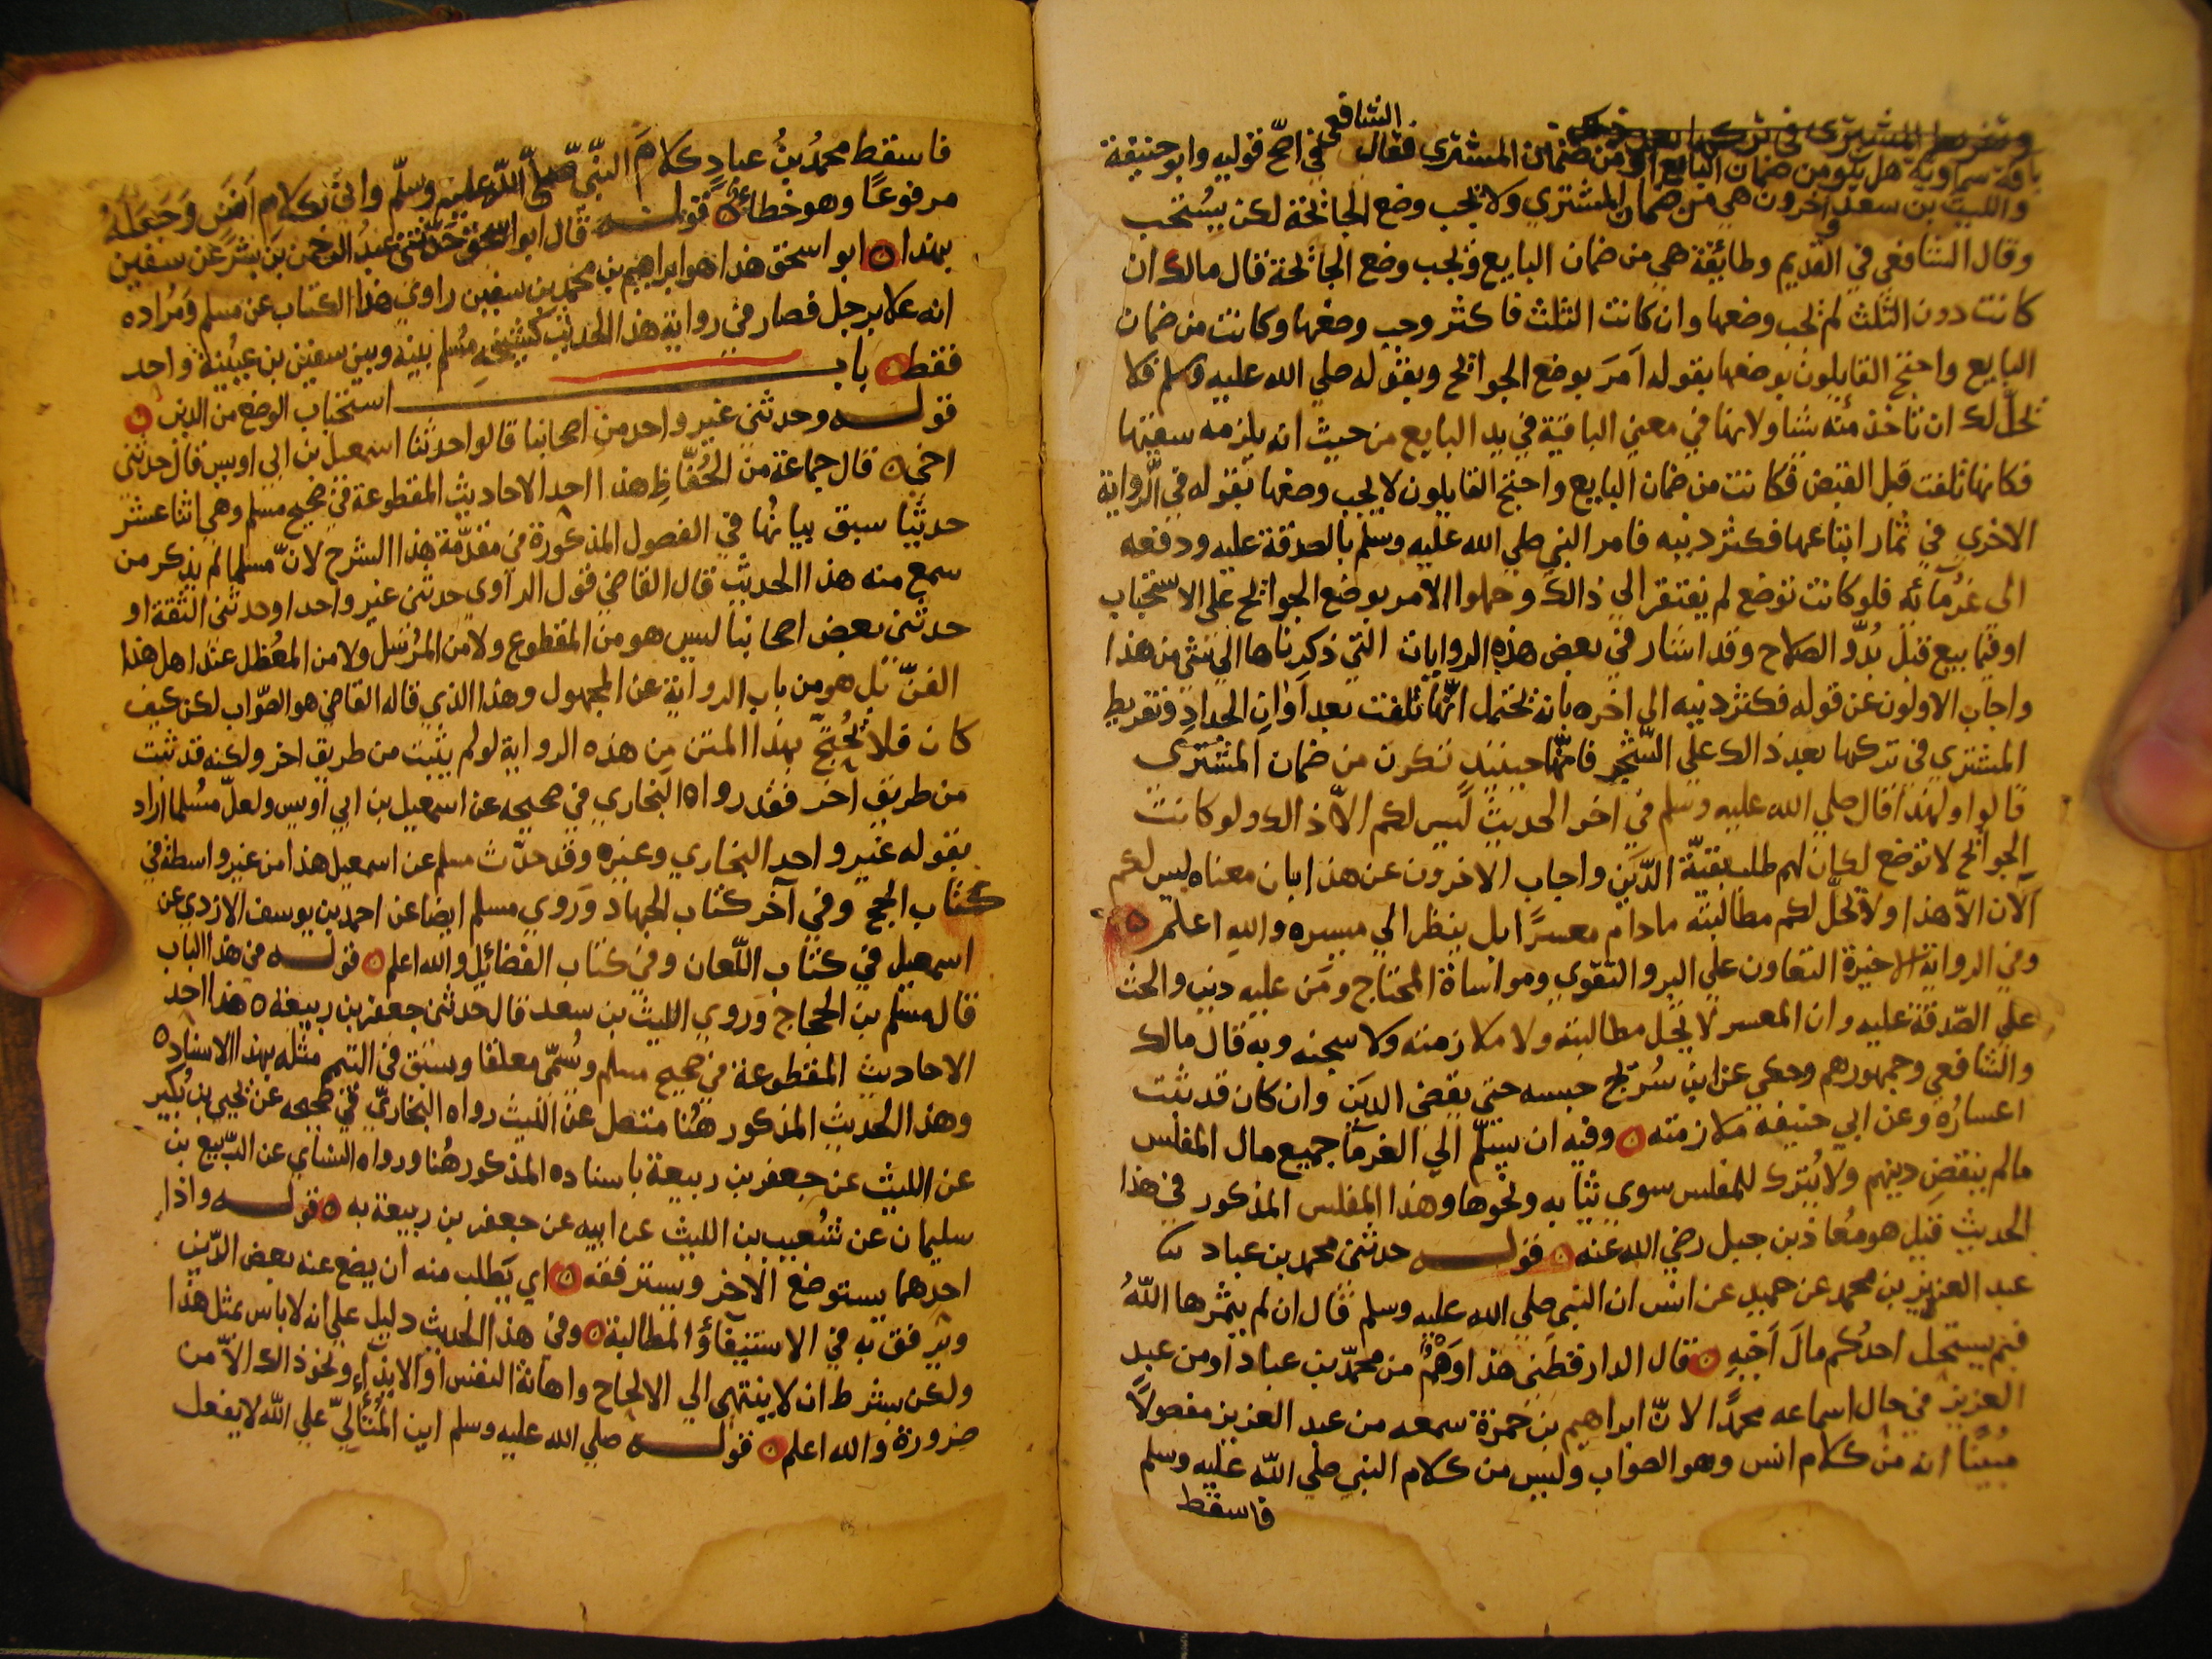 بافة سماوية هل تكون من ضمان البايع او من ضمان المشتري فقال الشافعي في اصح قوليه وابو حنيفة
والليث بن سعد واخرون هي من ضمان المشتري ولا يجب وضع الجائحة لكن يستحب
وقال الشافعي في القديم وطائفة هي من ضمان البايع ويجب وضع الجائحة قال مالك ان
كانت دون الثلث لم يجب وضعها وان كانت الثلث فاكثر وجب وضعها وكانت من ضمان
البايع واحتج القايلون بوضعها بقوله امَرَ بوضع الجوائح وبقوله صلي الله عليه وسلم فلا
يحلّ لك ان تاخذ منه شيا ولانها في معني الباقية في يد البايع من حيث انه يلزمه سقيها
فكانها تلفت قبل القبض فكانت من ضمان البايع واحتج القايلون لا يجب وضعها بقوله في الرواية
الاخري في ثمار ابتاعها فكثر دينه فامر النبي صلي الله عليه وسلم بالصدقة عليه ودفعه
الي غرمآئه فلو كانت توضع لم يفتقر الي ذالك وحملوا الامر بوضع الجوائح علي الاستحباب
او فيما بيع قبل بُدّو الصلاح وقد اشار في بعض هذه الروايات التي ذكرناها الي شئ من هذا
واجاب الاولون عن قوله فكثر دينه الي اخره بانه يحتمل انّها تلفت بعد اَوانِ الجدادِ وتفريط
المشتري في تركها بعد ذالك علي الشّجر فانّها حينيذ تكون من ضمان المشتري
قالوا ولهذا قال صلي الله عليه وسلم في اخر الحديث ليس لكم الاّ ذالك ولو كانت
الجوائح لا توضع لكان لهم طلب بقيّة الدَّين واجاب الاخرون عن هذا بان معناه ليس لكم
الآن الاّ هذا ولا تحلّ لكم مطالبته مادام معسرًا بل ينظر الي ميسره والله اعلم
وفي الرواية الاخيرة التعاون علي البر والتقوي ومواساة المحتاج ومَن عليه دين والحث
علي الصّدقة عليه وان المعسر لا تحل مطالبته ولا ملازمته ولا سجنه وبه قال مالك
والشافعي وجمهورهم وحكي عن ابن سُريج حبسه حتي يقضي الدين وان كان قد ثبت
اعسارُه وعن ابي حنيفة ملازمته وفيه ان يسلّم الي الغرمآ جميع مال المفلس
مالم ينقض دينهم ولا يُترك للمفلس سوي ثيابه ونحوها وهذا المفلس المذكور في هذا
الحديث قيل هو مُعاذ بن جبل رضي الله عنه قولـــه حدثني محمد بن عباد نا
عبد العزيز بن محمد عن حميد عن انس ان النبي صلي الله عليه وسلم قال ان لم يثمرها اللّهُ
فبم يستحل احدُكم مالَ اَخيه قال الدارقطني هذا وَهَمٌ من محمّد بن عباد او من عبد
العزيز في حال اسماعه محمدًا لانّ ابراهيم بن حمزة سمعه من عبد العزيز مفصولاً
مُبينًا انه من كلام انس وهو الصواب وليس من كلام النبي صلي اللّه عليه وسلم
فاسقط
فاسقط محمدُ بنُ عبادٍ كلامَ النّبّي صلّي اللّه عليه وسلّم واتي بكلامِ اَنَسٍ وَجَعلَهُ
مرفوعًا وهو خطا قولـــه قال ابو اسحق حدثني عبد الرحمن بن بشر عن سفين
بهذا ابو اسحق هذا هو ابراهيم بن محمد بن سفين راوي هذا الكتاب عن مسلم ومُراده
انه علا برجل فصار في رواية هذا الحديث كشيخه مُسلم بينه وبين سفين بن عيينة واحد
فقط باب استحباب الوضع من الدين
قولـــه وحدثني غير واحد من اصحابنا قالوا حدثنا اسمعيل بن ابي اويس قال حدثني
اخي قال جماعة من الحُفّاظِ هذا احد الاحاديث المقطوعة في صحيح مسلم وهي اثنا عشر
حديثًا سبق بيانُها في الفصول المذكورة في مقدّمة هذا الشرح لانّ مسلما لم يذكر من
سمع منه هذا الحديث قال القاضي قول الراوي حدثني غير واحد او حدثني الثقة او
حدثني بعض اصحابنا ليس هو من المقطوع ولا من المُرسَل ولا من المُعضل عند اهل هذا
الفنّ بل هو من باب الرواية عن المجهول وهذا الذي قاله القاضي هو الصّواب لكن كيف
كان فلا يُحتجّ بهذا المتن من هذه الرواية لو لم يثبت من طريق اخر ولكنه قد ثبت
من طريق اخر فقد رواه البخاري في صحيحه عن اسمعيل بن ابي اويس ولعلّ مُسلما اراد
بقوله غير واحد البخاري وغيره وقد حدّث مسلم عن اسمعيل هذا من غير واسطة في
كتاب الحج وفي آخر كتاب الجهاد وَرَوي مسلم ايضا عن احمد بن يوسف الازدي عن
اسمعيل في كتاب اللّعان وفي كتاب الفضائل والله اعلم قولـــه في هذا الباب
قال مسلم بن الحجاج وَرَوي الليث بن سعد قال حدثني جعفر بن ربيعة هذا احد
الاحاديث المقطوعة في صحيح مسلم وسُمّي معلقا وسبق في التيمم مثله بهذا الاسناد
وهذا الحديث المذكور هُنا متصل عن الليث رواه البخاريّ في صحيحه عن يحيي بن بُكير
عن الليث عن جعفر بن ربيعة باسناده المذكور هُنا ورواه النساي عن الربيع بن
سليمان عن شُعيب بن الليث عن ابيه عن جعفر بن ربيعة به قولـــه واذا
احدهما يستوضع الآخر ويسترفقه اي يَطلب منه ان يضع عنه بعض الدّين
ويرفق به في الاستيفآؤ المطالبة وفي هذا الحديث دليل علي انه لا باس بمثل هذا
ولكن بشرط ان لا ينتهي الي الالحاح واهانة النفس او الايذآء ونحو ذالك الاّ من
ضرورة والله اعلم قولـــه صلي الله عليه وسلم اين المُتألّي علي اللّه لا يفعل